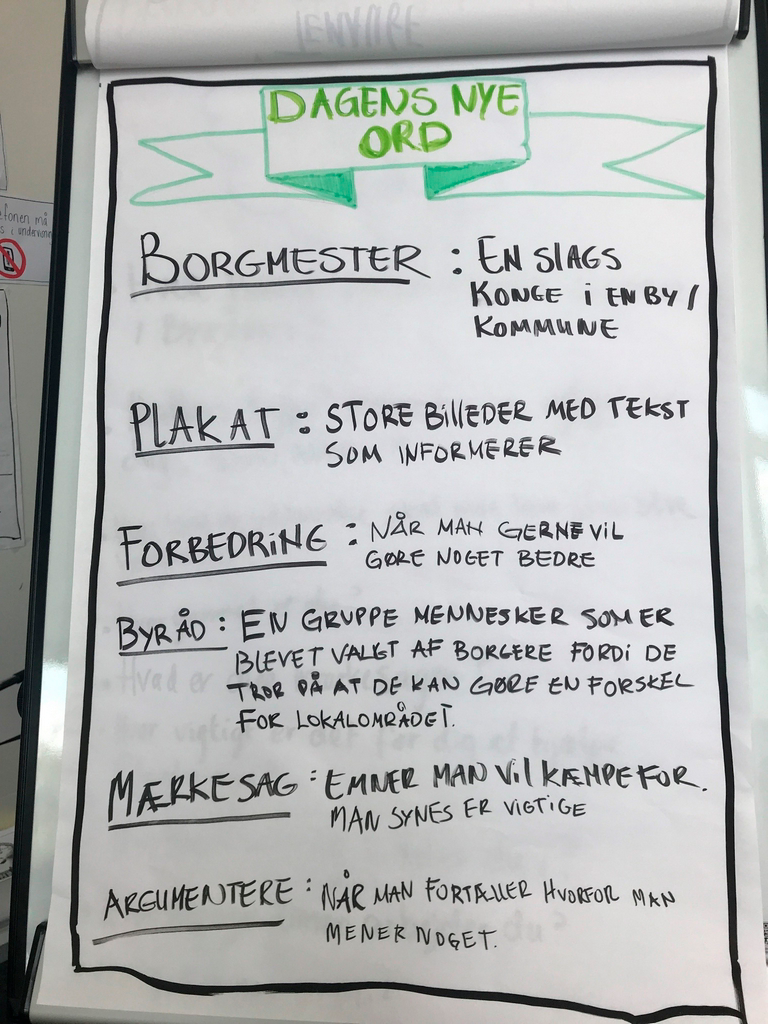 DAGENS NYE
ORD
BORGMESTER : EN SLAGS
KONGE i EN BY /
KOMMUNE
PLAKAT : STORE BiLLEDER MED TEKST
SOM INFORMERER
FORBEDRiNG : NÅR MAN GERNE ViL
GØRE NOGET BEDRE
BYRÅD : EN GRUPPE MENNESKER SOM ER
BLEVET VALGT AF BORGERE FORDi DE
TROR PÅ AT DE KAN GØRE EN FORSKEL
FOR LOKALOMRÅDET.
MÆRKESAG : EMNER MAN ViL KÆMPE FOR.
MAN SYNES ER VIGTiGE
ARGUMENTERE : NÅR MAN FORTÆLLER HVORFOR MAN
MENER NOGET.
efonen må
s i undervisnin